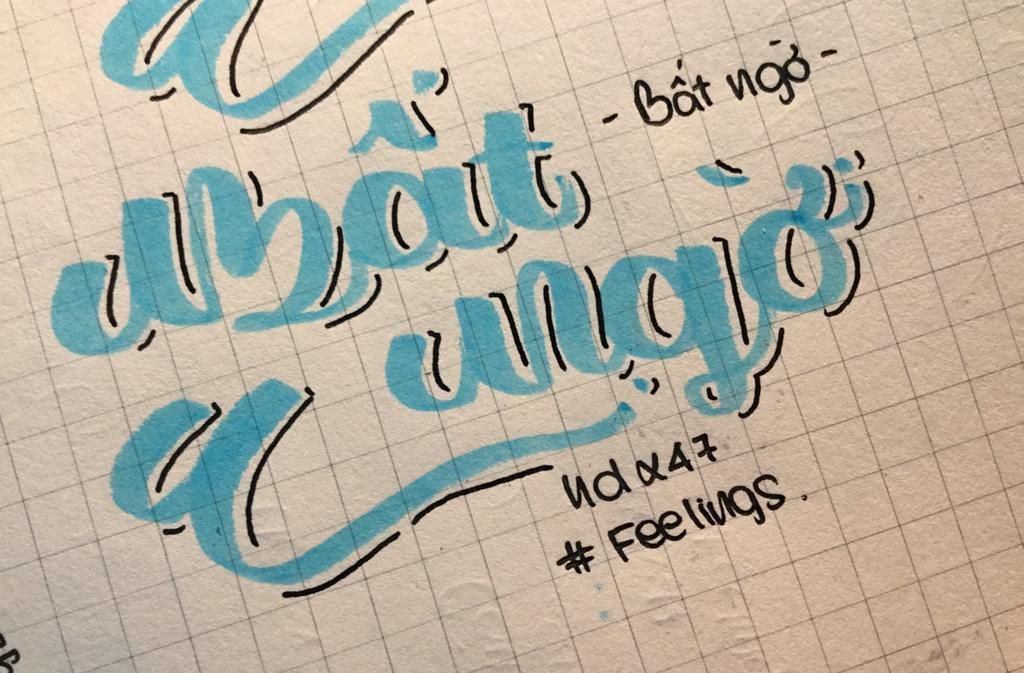 - Bất ngờ -
Bất
ngờ
ndx47
# Feelings.